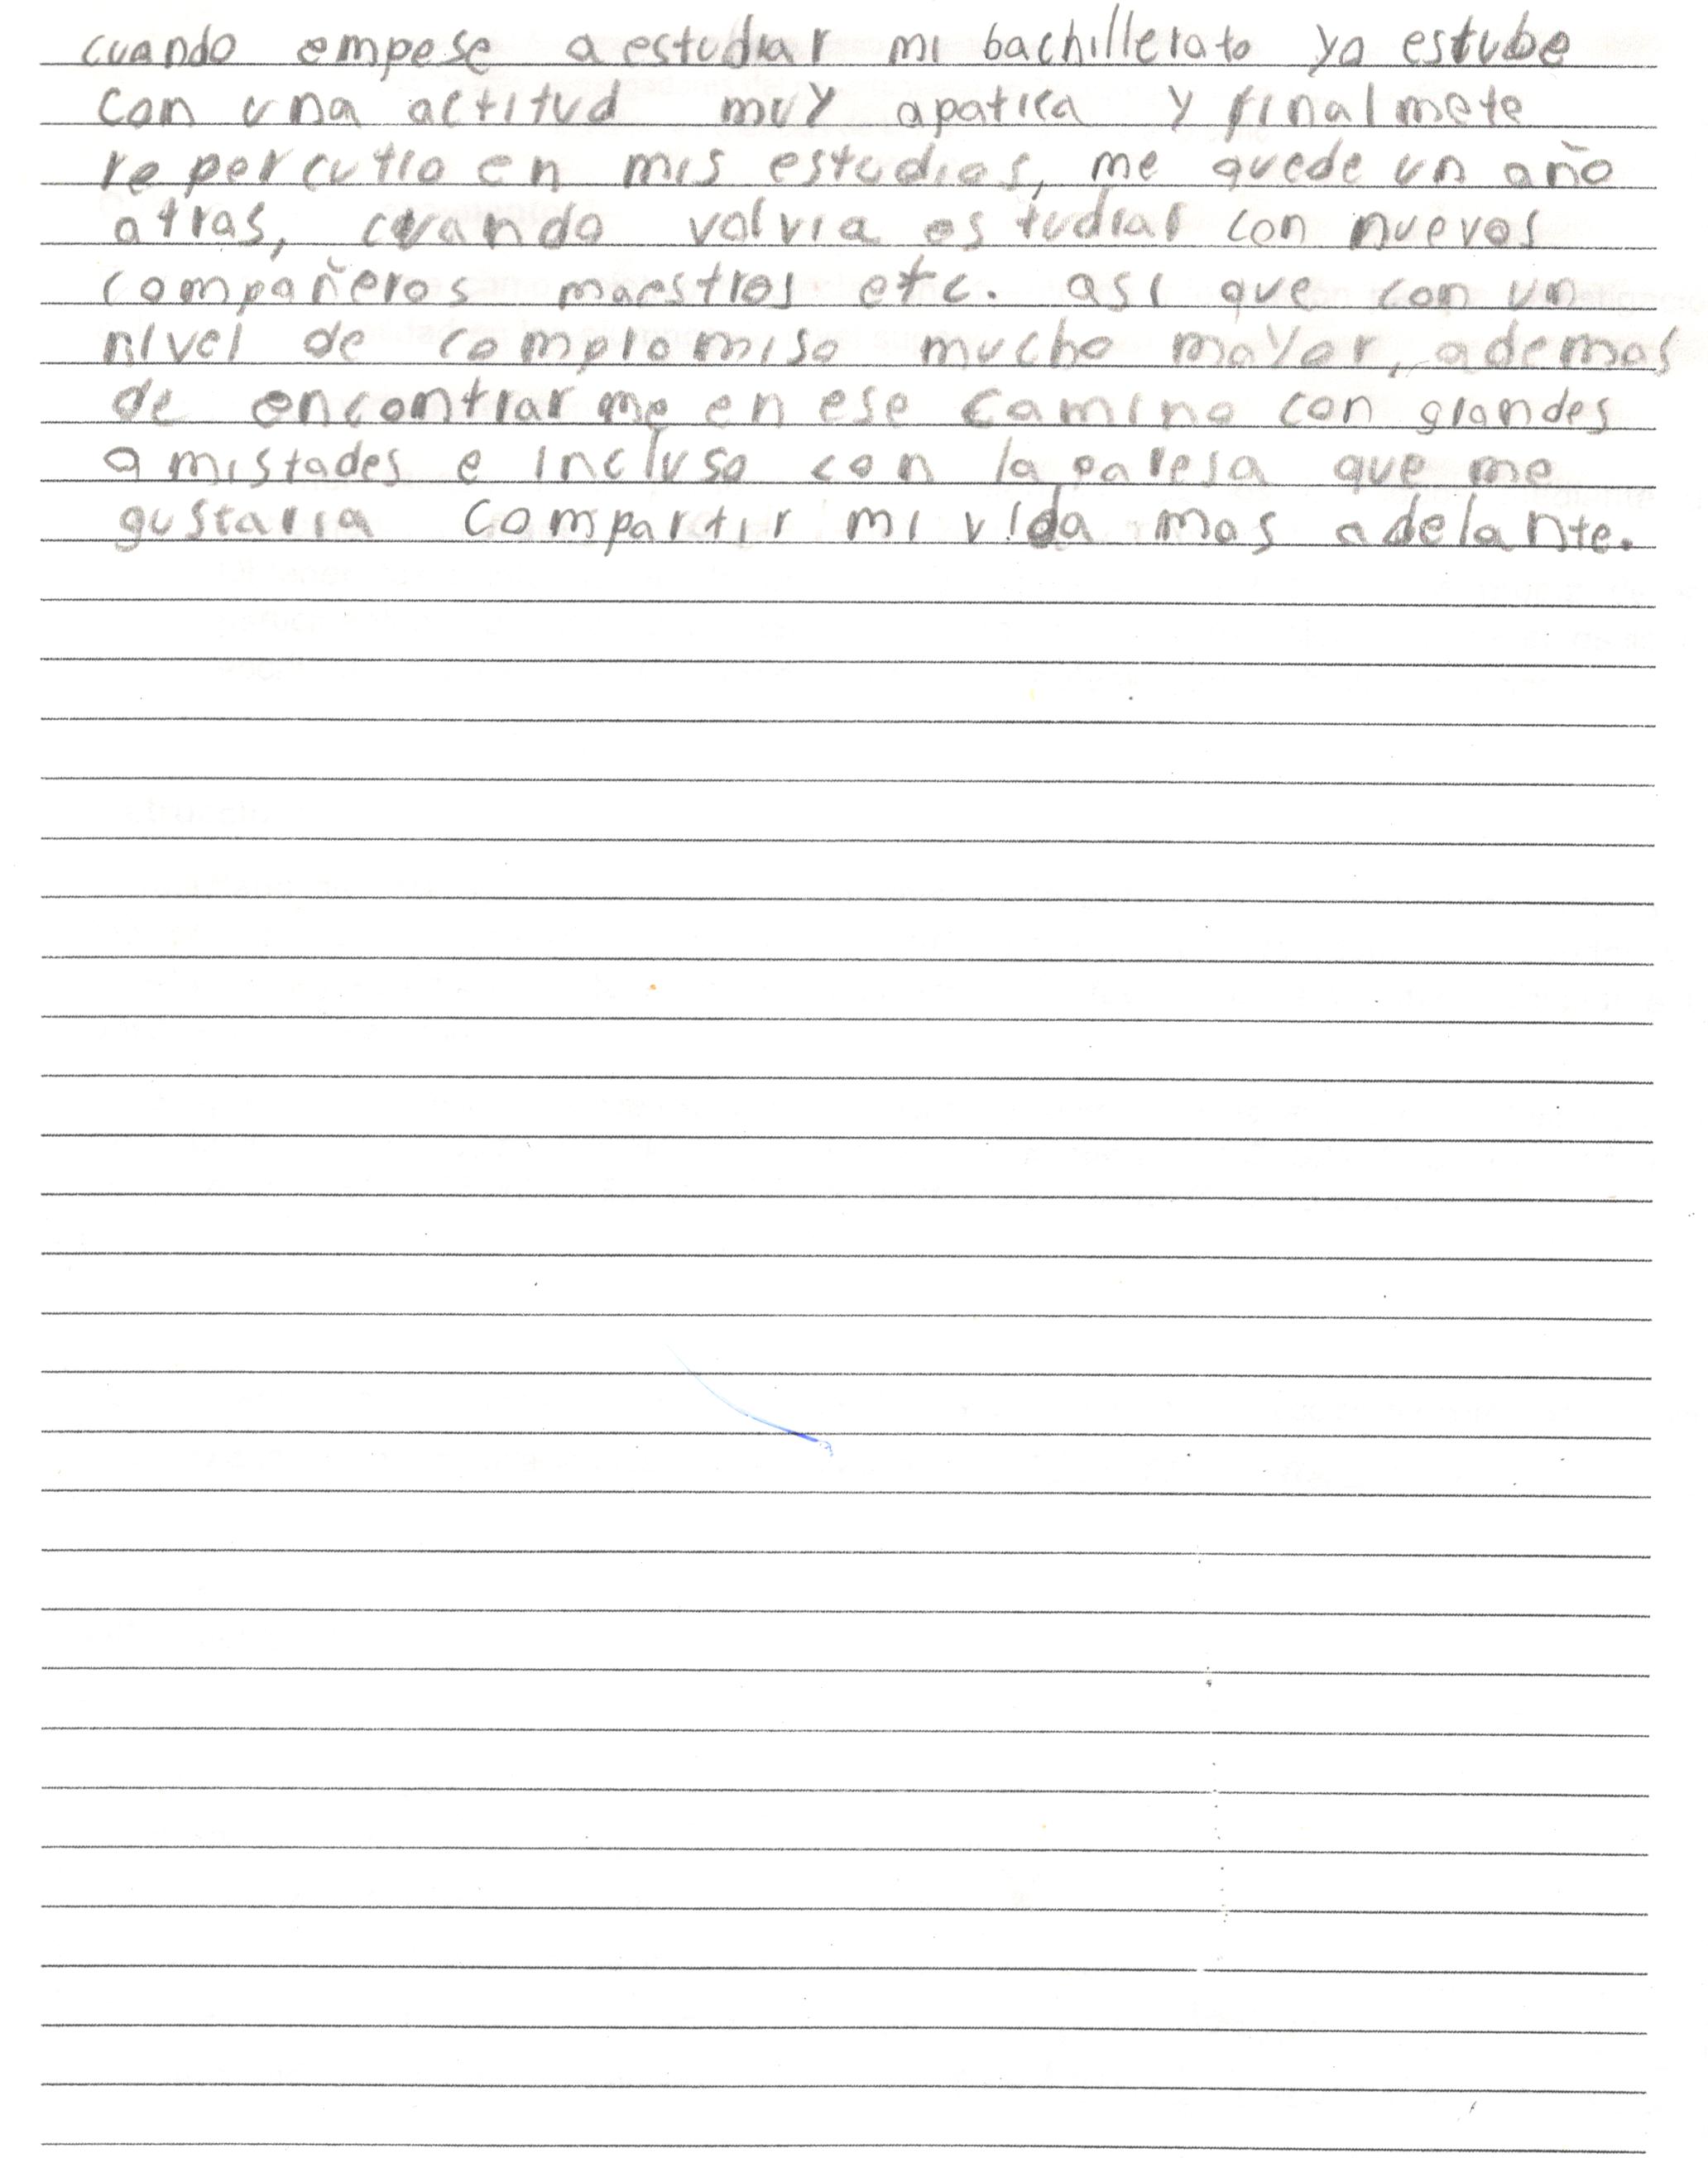 cuando empese a estudiar mi bachillerato yo estube
con una actitud muy apatica y finalmete
repercutio en mis estudios, me quede un año
atras, cuando volvi a estudiar con nuevos
compañeros maestros etc. asi que con un
nivel de compromiso mucho mayor, ademas
de encontrarme en ese camino con grandes
amistades e incluso con la paresa que me
gustaria compartir mi vida mas adelante.